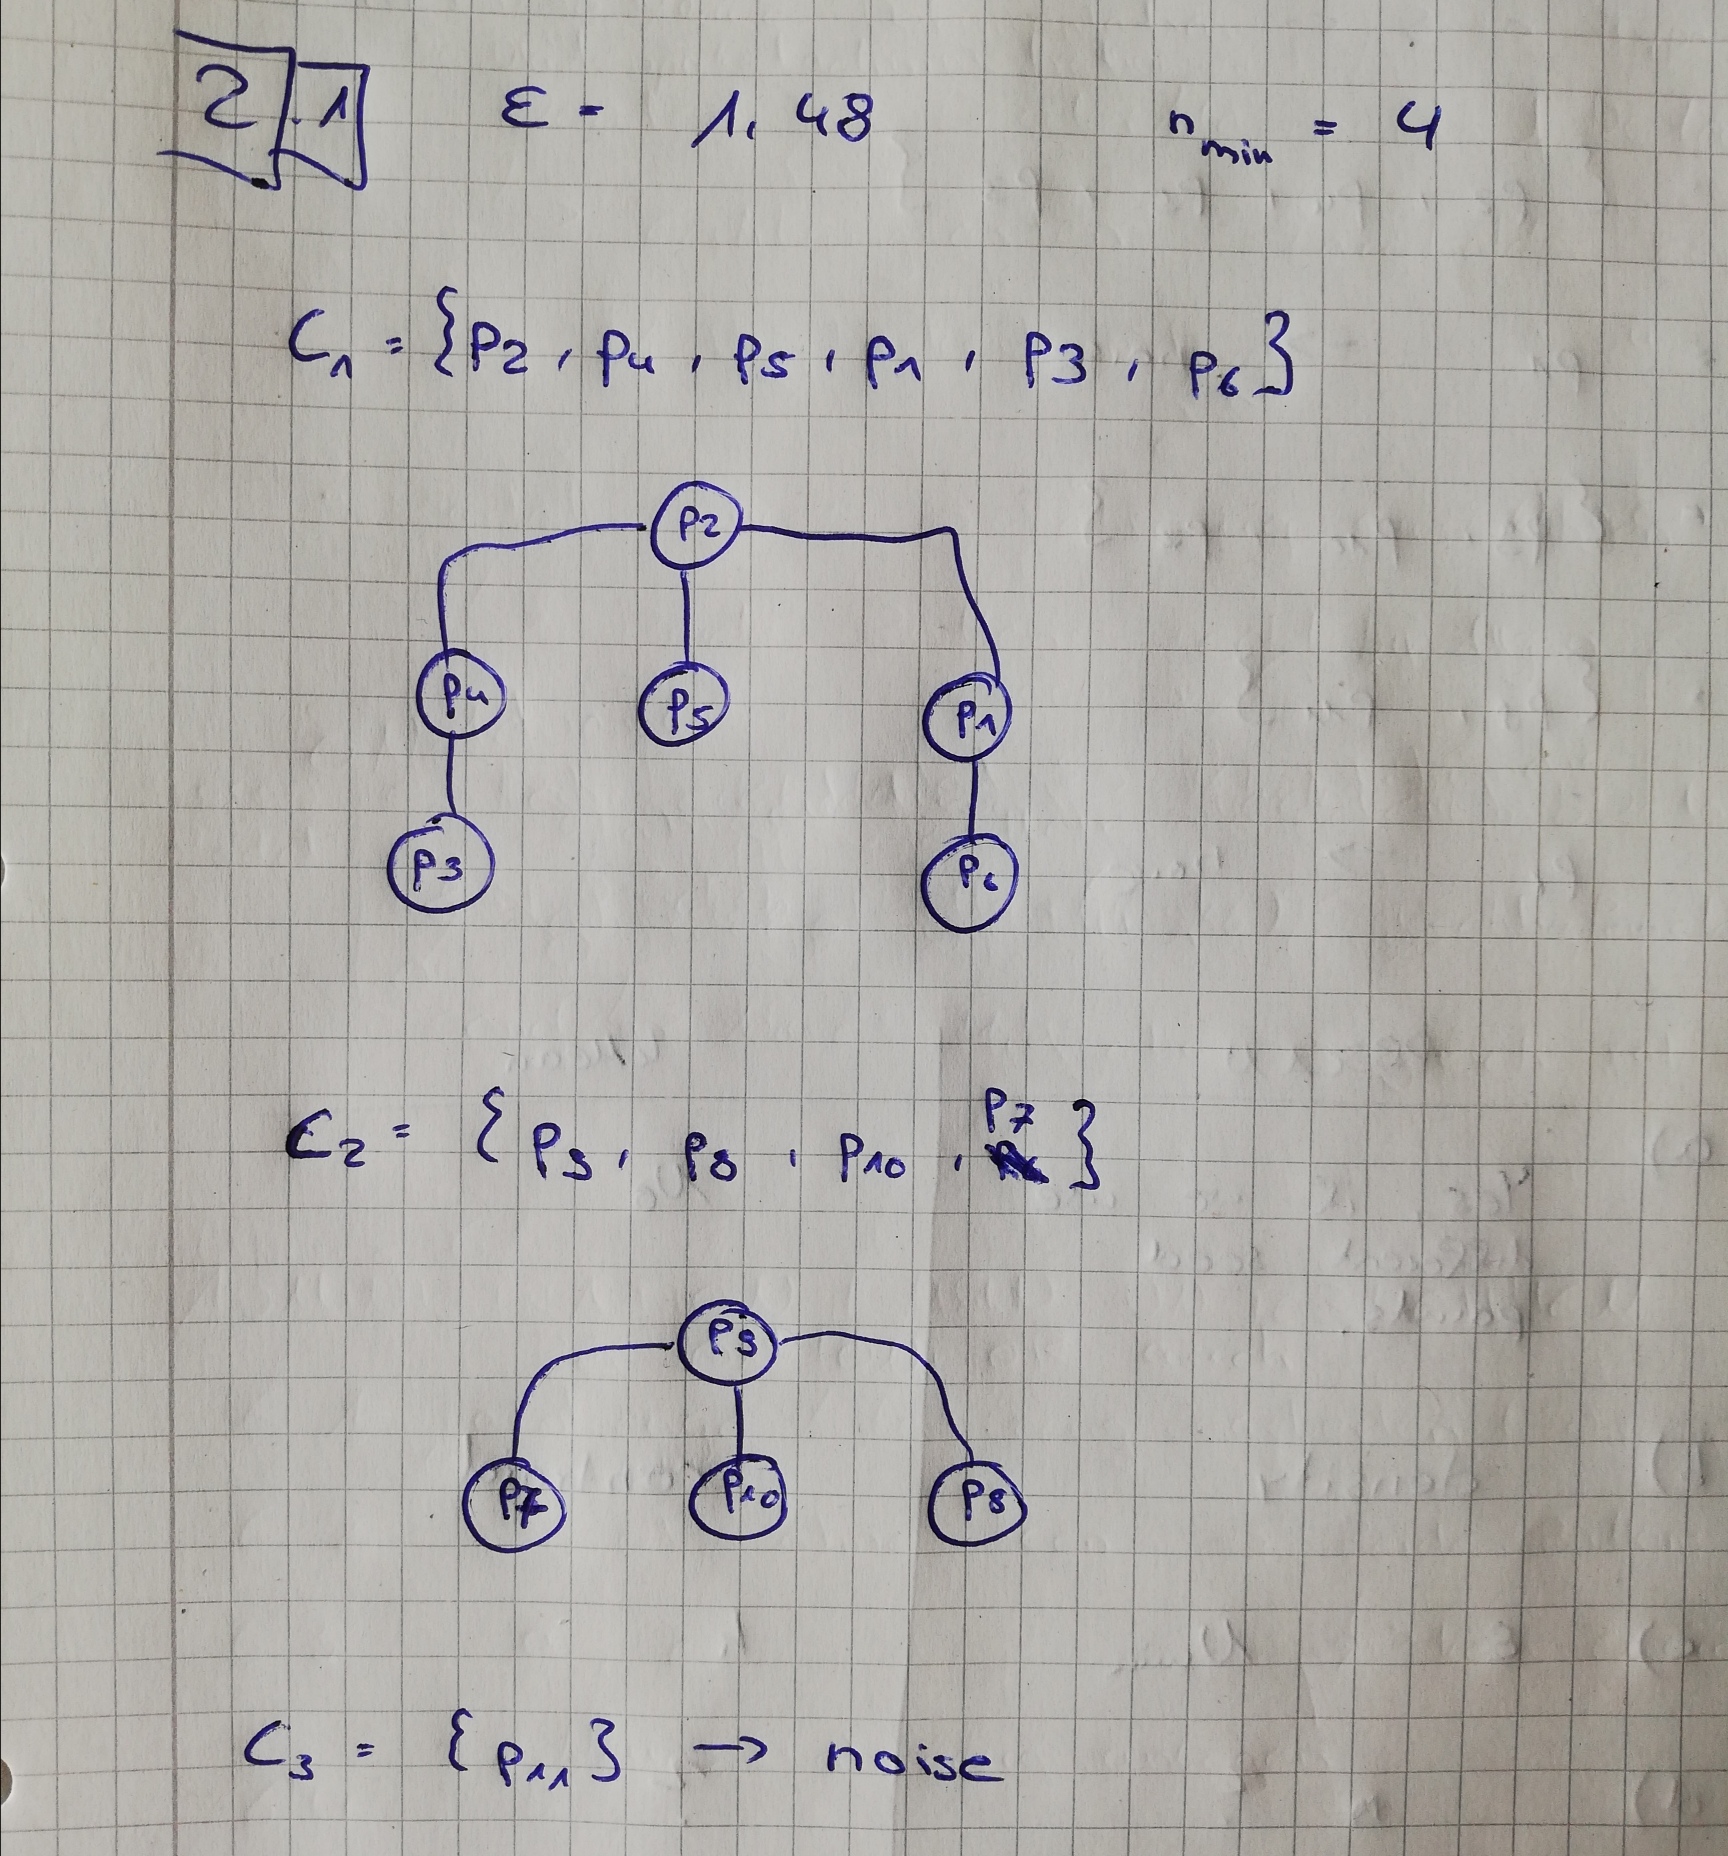 2.1 ε = 1.48 n_min = 4
C₁ = {P2, P4, P5, P1, P3, P6}
P2
P4 P5 P1
P3 P6
C₂ = {P9, P8, P10, P7}
P9
P7 P10 P8
C₃ = {P11} → noise